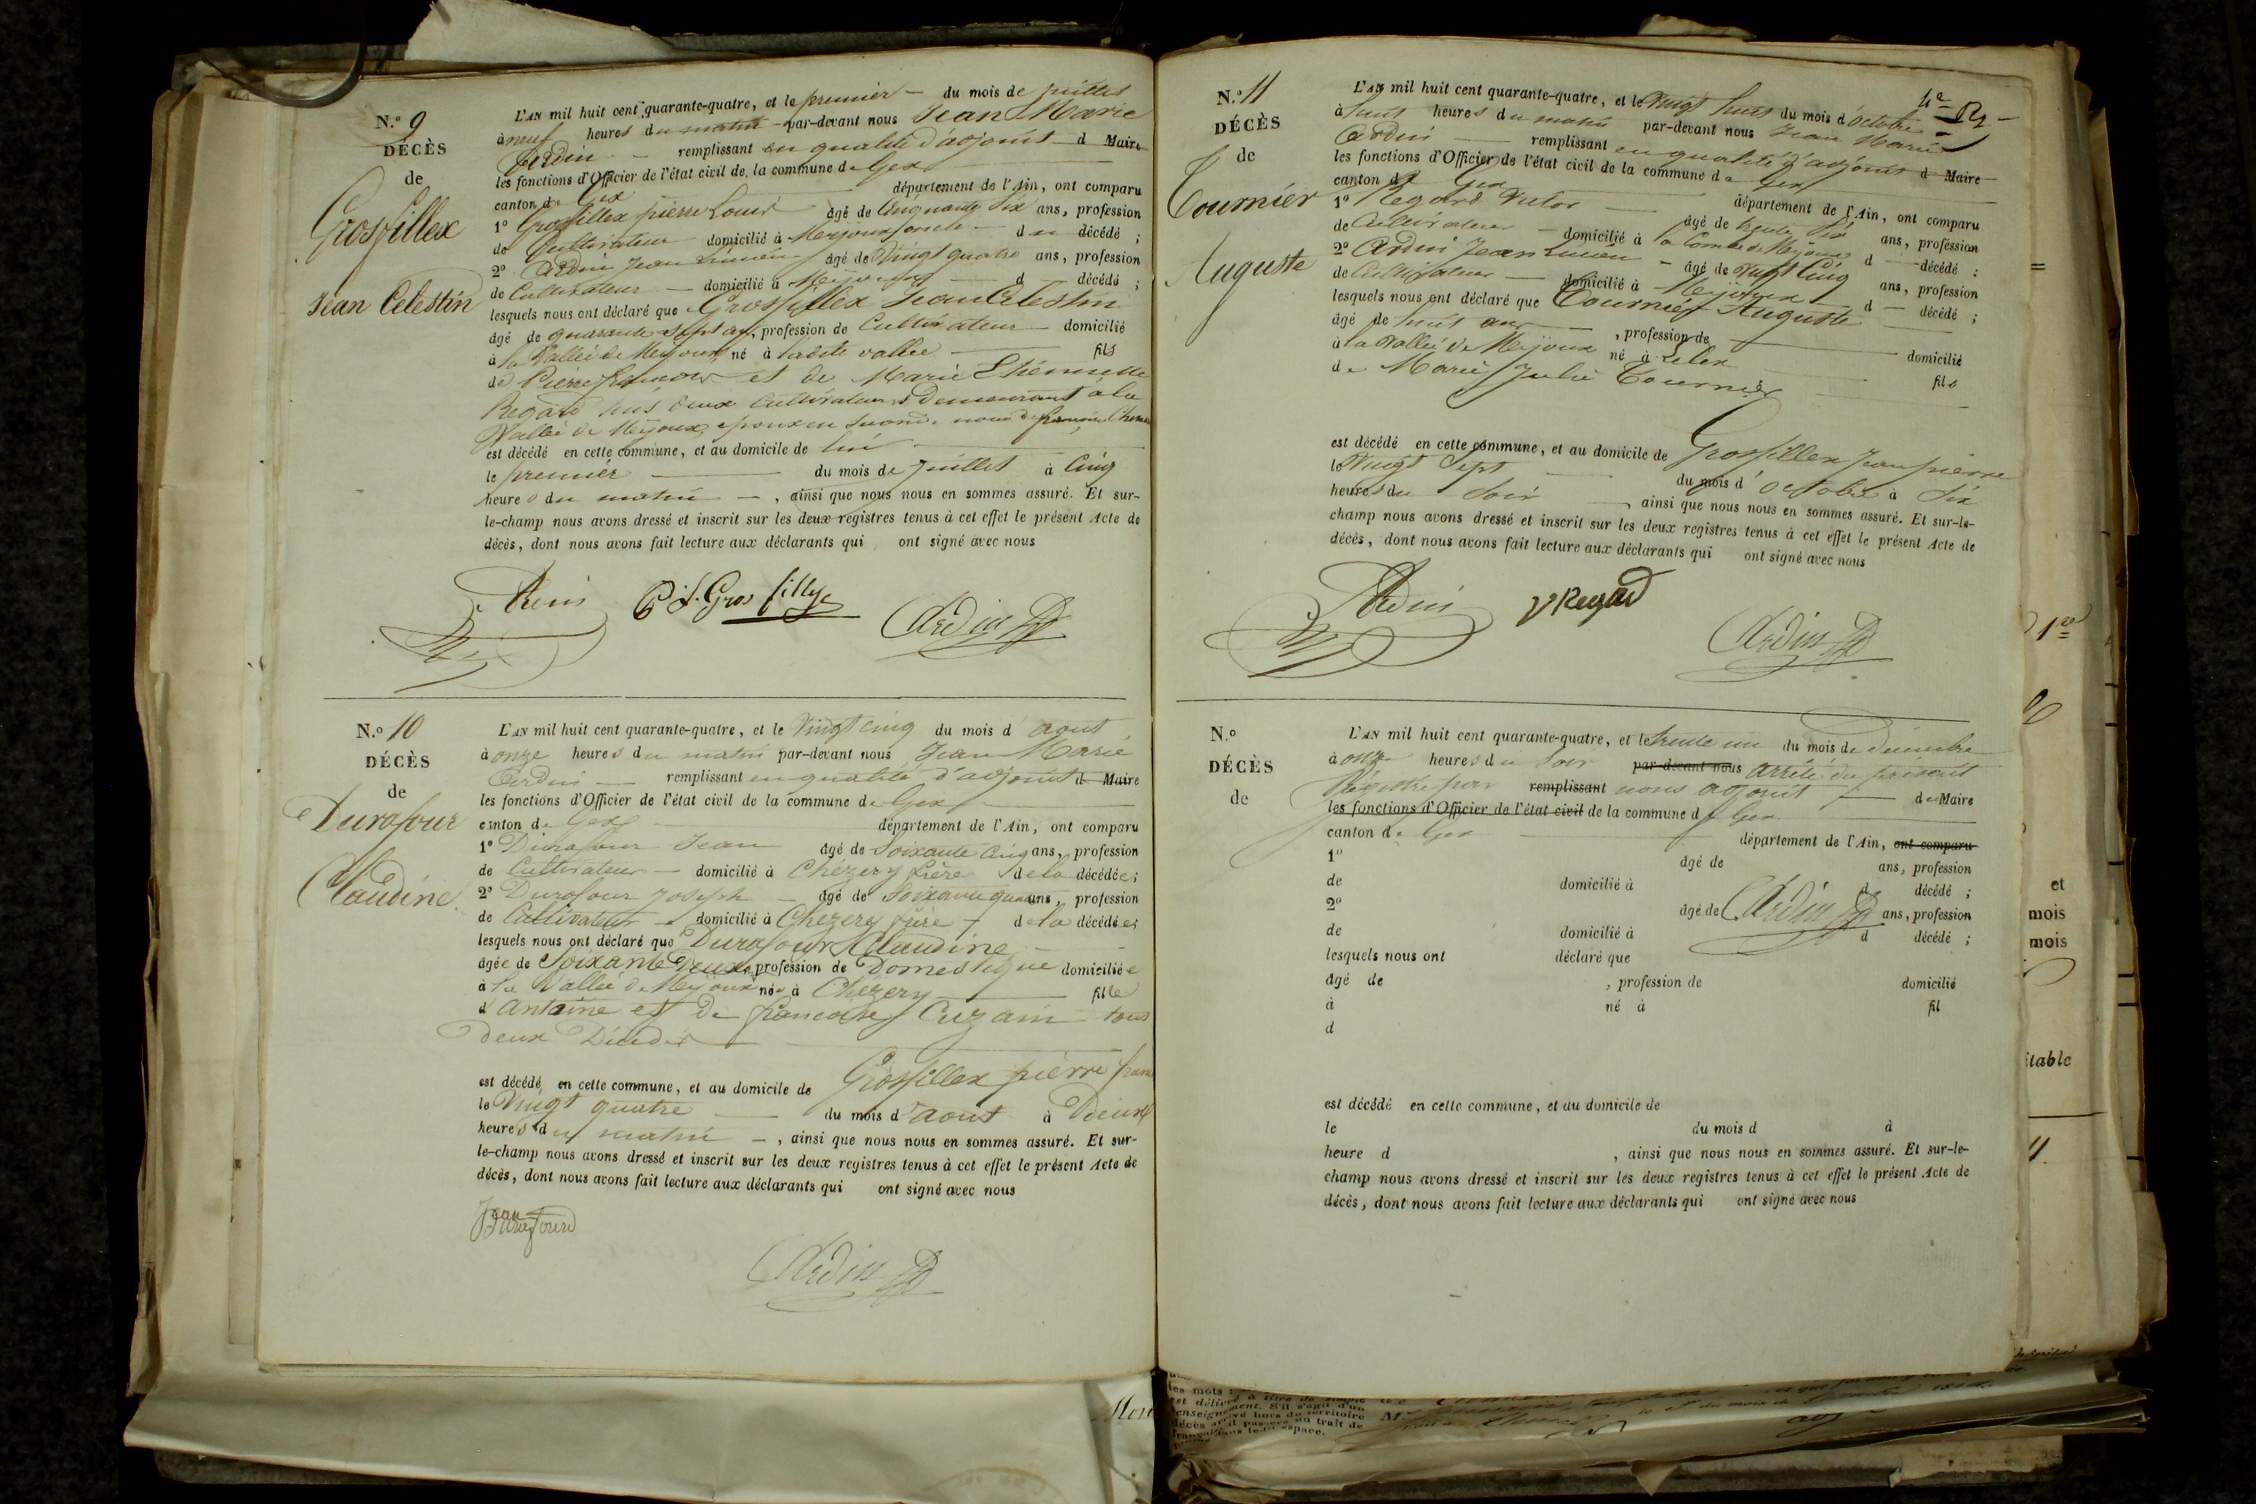 N.º 9
DÉCÈS
de
Grosfillex
Jean Célestin
L'AN mil huit cent quarante-quatre, et le premier du mois de juillet
à neuf heures du matin par-devant nous Jean Marie
Ardin remplissant en qualité d'adjoint d Maire
les fonctions d'Officier de l'état civil de la commune de Gex
canton de Gex département de l'Ain, ont comparu
1º Grosfillex pierre Louis âgé de Cinquante Six ans, profession
de Cultivateur domicilié à Mejoux oncle du décédé ;
2º Ardin Jean Lucien âgé de Vingt quatre ans, profession
de Cultivateur domicilié à Mejoux d décédé ;
lesquels nous ont déclaré que Grosfillex Jean Célestin
âgé de quarante sept ans, profession de Cultivateur domicilié
à la Vallée de Mejoux né à ladite vallée fils
de Pierre françois et de Marie Ethiennette
Regard tous deux Cultivateurs demeurant à la
Vallée de Mejoux, époux en secondes noces de
est décédé en cette commune, et au domicile de lui
le premier du mois de juillet à Cinq
heures du matin , ainsi que nous nous en sommes assuré. Et sur-
le-champ nous avons dressé et inscrit sur les deux registres tenus à cet effet le présent Acte de
décès, dont nous avons fait lecture aux déclarants qui ont signé avec nous
Ardin P L Grosfillex Ardin
N.º 10
DÉCÈS
de
Durafour
Claudine
L'AN mil huit cent quarante-quatre, et le Vingt cinq du mois d'aout
à onze heures du matin par-devant nous Jean Marie
Ardin remplissant en qualité d'adjoint d Maire
les fonctions d'Officier de l'état civil de la commune de Gex
canton de Gex département de l'Ain, ont comparu
1º Durafour Jean âgé de Soixante Cinq ans, profession
de Cultivateur domicilié à Chézery frère de la décédée ;
2º Durafour Joseph âgé de Soixante quatre ans, profession
de Cultivateur domicilié à Chézery frère de la décédée
lesquels nous ont déclaré que Durafour Claudine
âgée de Soixante Deux, profession de Domestique domiciliée
à la Vallée de Mejoux née à Chézery fille
d'Antoine et de françoise Cuzain tous
deux Décédés
est décédé en cette commune, et au domicile de Grosfillex pierre
le Vingt quatre du mois d'aout à Deux
heures du matin , ainsi que nous nous en sommes assuré. Et sur-
le-champ nous avons dressé et inscrit sur les deux registres tenus à cet effet le présent Acte de
décès, dont nous avons fait lecture aux déclarants qui ont signé avec nous
Jean
Durafour
Ardin
N.º 11
DÉCÈS
de
Tournier
Auguste
L'AN mil huit cent quarante-quatre, et le Vingt huit du mois d'octobre
à huit heures du matin par-devant nous Jean Marie
Ardin remplissant en qualité d'adjoint d Maire
les fonctions d'Officier de l'état civil de la commune de Gex
canton de Gex département de l'Ain, ont comparu
1º Regard Victor âgé de trente Six ans, profession
de Cultivateur domicilié à la Combe de Mejoux d décédé ;
2º Ardin Jean Lucien âgé de vingt Cinq ans, profession
de Cultivateur domicilié à Mejoux d décédé ;
lesquels nous ont déclaré que Tournier Auguste
âgé de huit ans , profession de domicilié
à la Vallée de Mejoux né à Lelex fils
de Marie Julie Tournier
est décédé en cette commune, et au domicile de Grosfillex Jean pierre
le Vingt Sept du mois d'octobre à Six
heures du Soir , ainsi que nous nous en sommes assuré. Et sur-le-
champ nous avons dressé et inscrit sur les deux registres tenus à cet effet le présent Acte de
décès, dont nous avons fait lecture aux déclarants qui ont signé avec nous
Ardin V Regard
Ardin
N.º
DÉCÈS
de
L'AN mil huit cent quarante-quatre, et le trente un du mois de décembre
à onze heures du Soir par-devant nous arrêté du présent
Régistre par remplissant nous adjoint du Maire
les fonctions d'Officier de l'état civil de la commune de Gex
canton de Gex département de l'Ain, ont comparu
1º âgé de ans, profession
de domicilié à d décédé ;
2º âgé de Ardin ans, profession
de domicilié à d décédé ;
lesquels nous ont déclaré que
âgé de , profession de domicilié
à né à fil
d
est décédé en cette commune, et au domicile de
le du mois d à
heure d , ainsi que nous nous en sommes assuré. Et sur-le-
champ nous avons dressé et inscrit sur les deux registres tenus à cet effet le présent Acte de
décès, dont nous avons fait lecture aux déclarants qui ont signé avec nous
et
mois
mois